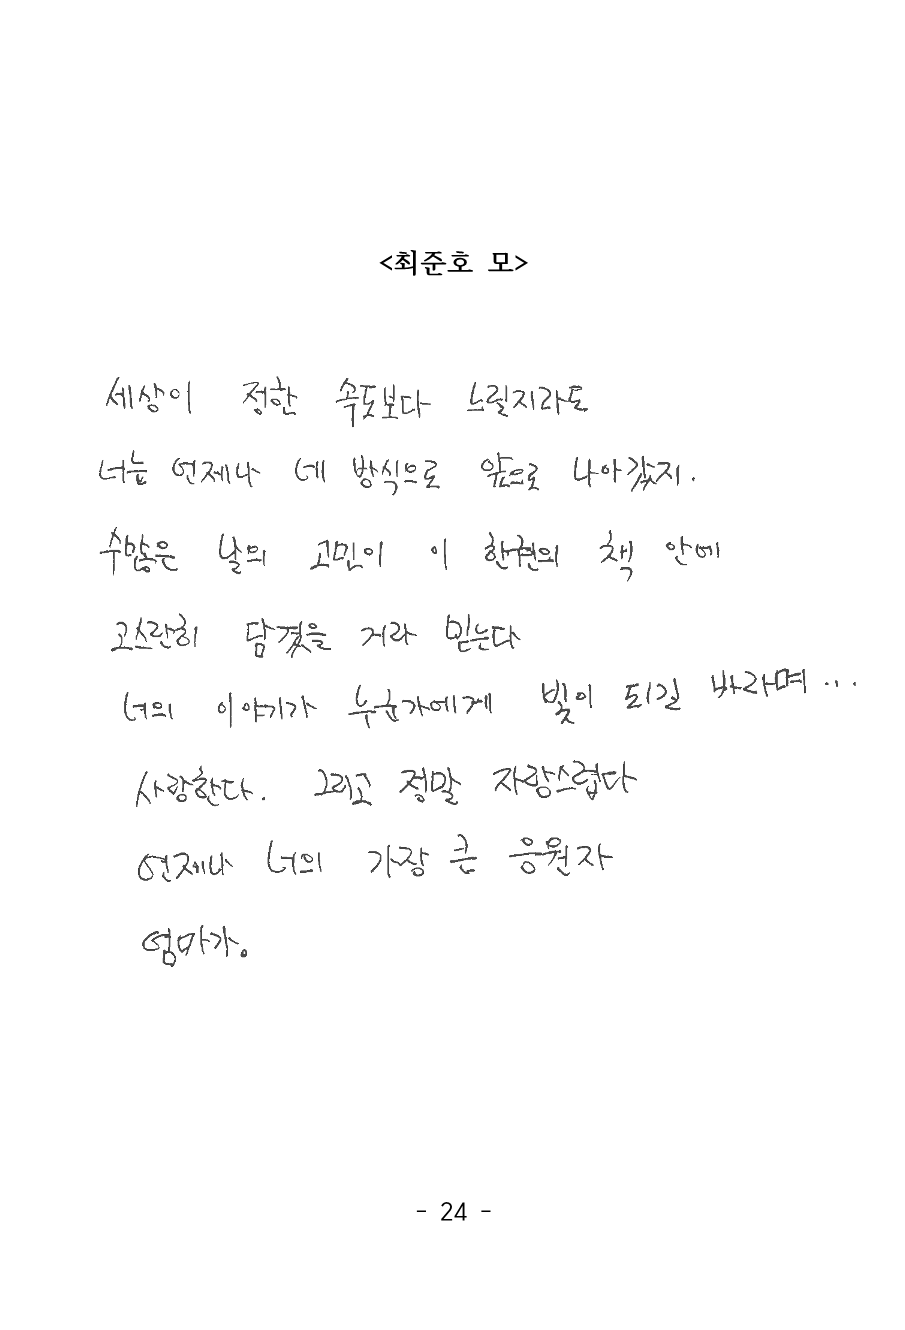 <최준호 모>
세상이 정한 속도보다 느릴지라도
너는 언제나 네 방식으로 앞으로 나아갔지.
수많은 날의 고민이 이 한권의 책 안에
고스란히 담겼을 거라 믿는다
너의 이야기가 누군가에게 빛이 되길 바라며...
사랑한다. 그리고 정말 자랑스럽다
언제나 너의 가장 큰 응원자
엄마가.
- 24 -